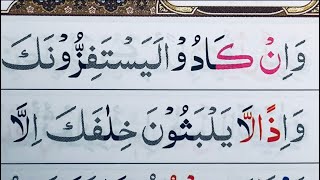 وَاِنْ كَادُوْا لَيَسْتَفِزُّوْنَكَ
وَاِذًا لَّا يَلْبَثُوْنَ خِلٰفَكَ اِلَّا